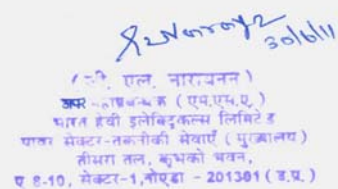 30/6/11
एल. नारायनन )
अपर महाप्रबन्धक ( एम.एम.ए. )
भारत हेवी इलेक्ट्रिकल्स लिमिटेड
पावर सेक्टर-तकनीकी सेवाएँ ( मुख्यालय )
तीसरा तल, कृभको भवन,
ए 8-10, सेक्टर-1, नोएडा - 201301 ( उ.प्र. )